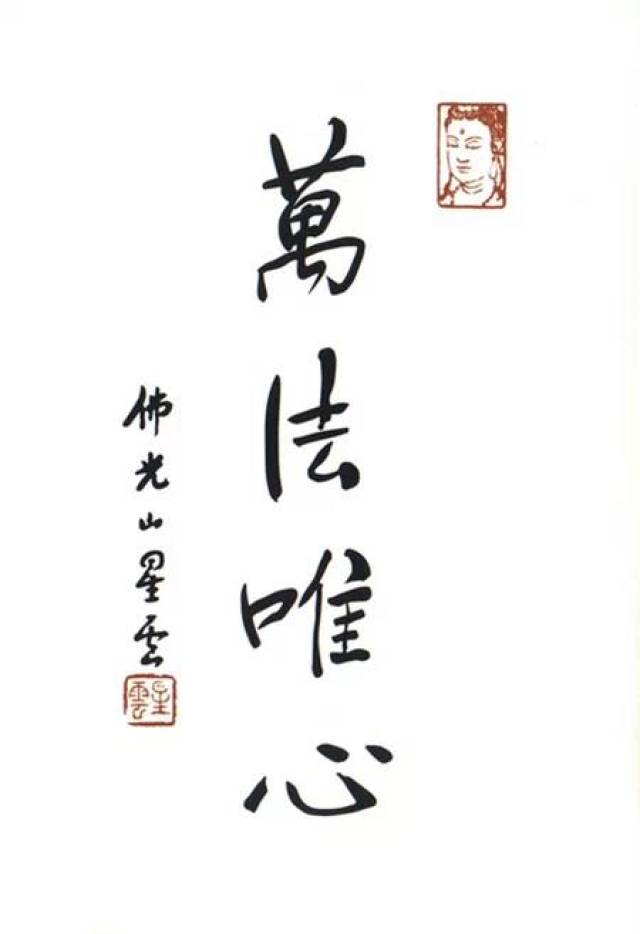 萬法唯心
佛光山星雲
星雲